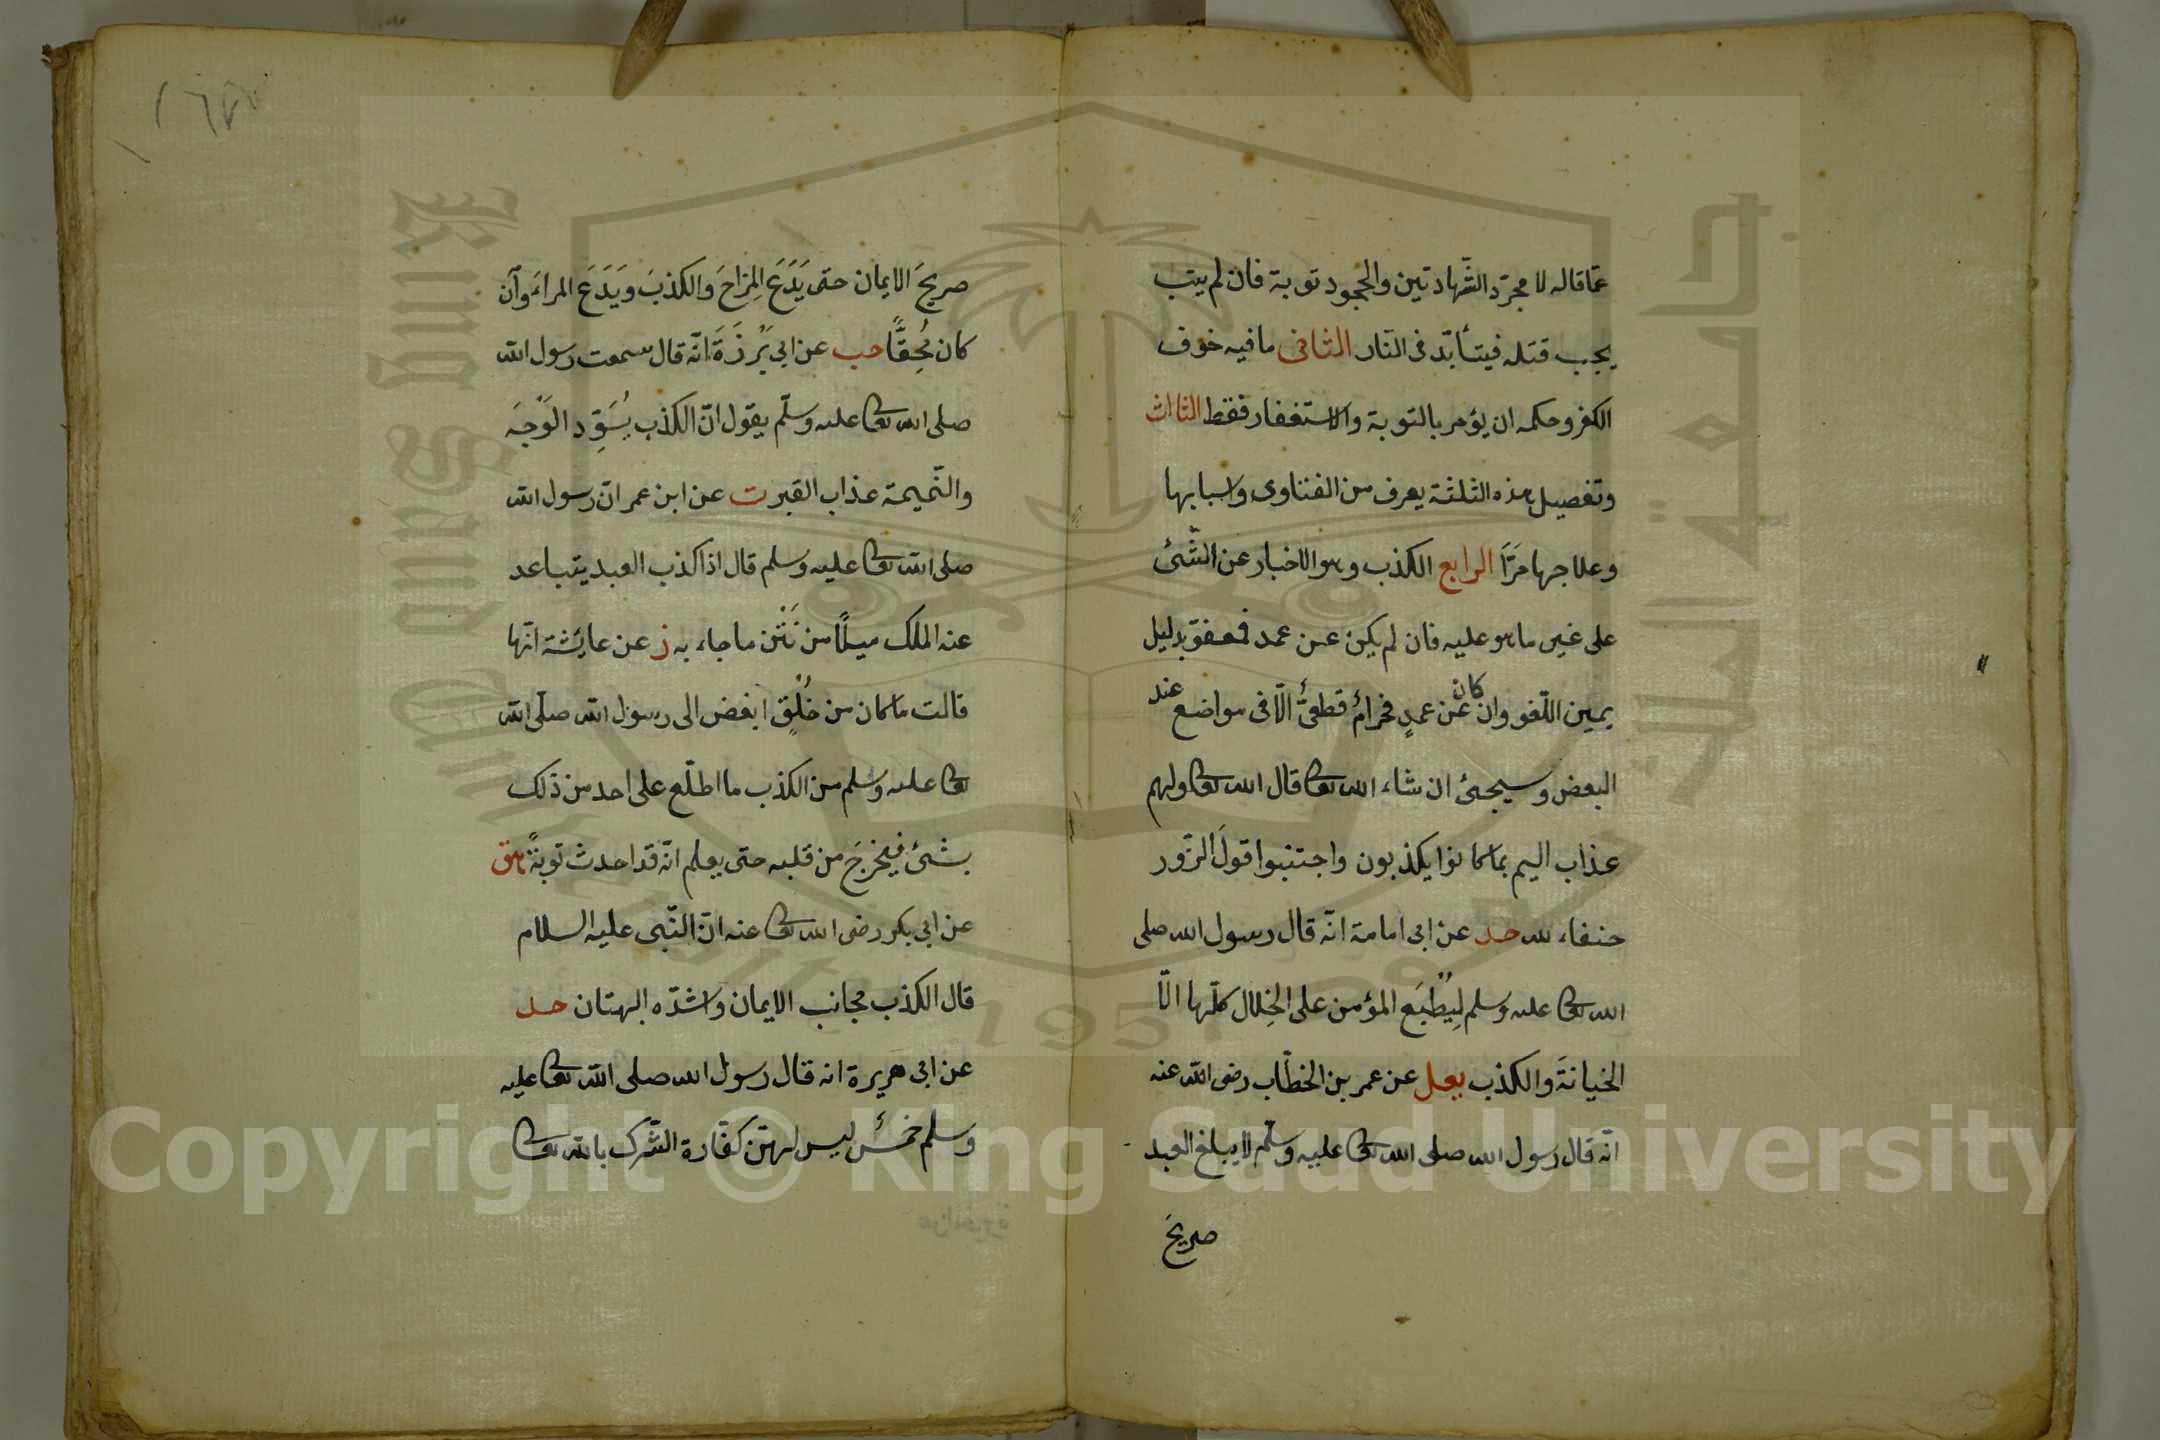 عمّا قاله لا مجرّد الشّهادتين والجحود توبة فان لم يتب
يجب قتله فيتأبّد فى النّار الثانى ما فيه خوف
الكفر وحكمه ان يؤمر بالتوبة والاستغفار فقط الثالث
وتفصيل هذه الثلثة يعرف من الفتاوى واسبابها
وعلاجها مَرَّ الرابع الكذب وهو الاخبار عن الشّئ
على غير ما هو عليه فان لم يكن عن عمد فمعفوّ بدليل
يمين اللّغو وان كان عن عمدٍ فحرامٌ قطعىٌّ الّا فى مواضع عند
البعض وسيجئ ان شاء الله تعالى قال الله تعالى ولهم
عذاب اليم بما كانوا يكذبون واجتنبوا قولَ الزّور
حنفاء لله حد عن ابى امامة انّه قال رسول الله صلى
الله تعالى عليه وسلم يُطْبَع المؤمن على الخِلال كلّها الّا
الخيانةَ والكذب يعل عن عمر بن الخطّاب رضى الله عنه
انّه قال رسول الله صلى الله تعالى عليه وسلّم لا يبلغ العبد
صريحَ
صريحَ الايمان حتى يَدَعَ المِزاحَ والكذبَ ويَدَعَ المراءَ وان
كان مُحِقًّا حب عن ابى بَرْزَةَ انّه قال سمعت رسول الله
صلى الله تعالى عليه وسلّم يقول انّ الكذب يُسَوِّد الوَجْهَ
والنّميمة عذاب القبر ت عن ابن عمر انّ رسول الله
صلى الله تعالى عليه وسلم قال اذا كذب العبد يتباعد
عنه الملك ميلًا من نَتْن ما جاء به ز عن عايشة انّها
قالت ما كان من خُلُقٍ ابغض الى رسول الله صلّى الله
تعالى عليه وسلم من الكذب ما اطلّع على احد من ذلك
بشئ فيخرجَ من قلبه حتى يعلم انّه قد احدث توبةً هق
عن ابى بكر رضى الله تعالى عنه انّ النّبى عليه السلام
قال الكذب مجانب الايمان واشدّه البهتان حد
عن ابى هريرة انه قال رسول الله صلى الله تعالى عليه
وسلم خمسٌ ليس لهنّ كفّارة الشّرك بالله تعالى
Copyright © King Saud University
King Saud University
جامعة الملك سعود
1957